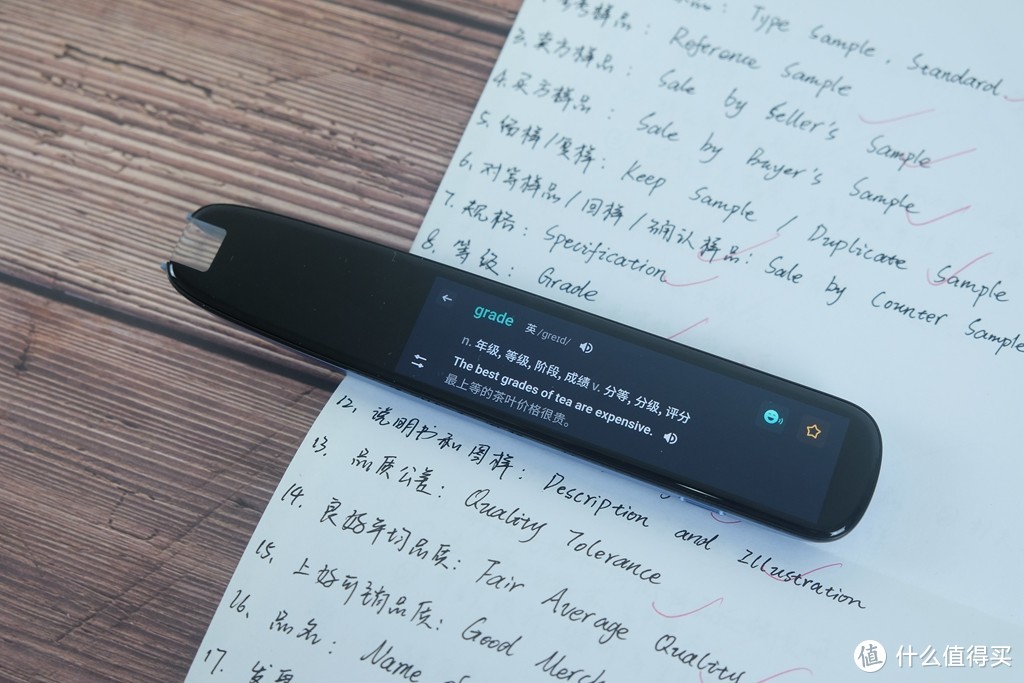 : Type Sample, Standard
考样品: Reference Sample
3. 卖方样品: Sale by Seller's Sample
4. 买方样品: Sale by Buyer's Sample
5. 留样/复样: Keep Sample / Duplicate Sample
6. 对等样品/回样/确认样品: Sale by Counter Sample
7. 规格: Specification
8. 等级: Grade
grade 英 /greɪd/
n. 年级, 等级, 阶段, 成绩 v. 分等, 分级, 评分
The best grades of tea are expensive.
最上等的茶叶价格很贵。
12. 说明书和图样: Description and Illustration
13. 品质公差: Quality Tolerance
14. 良好平均品质: Fair Average Quality
15. 上好可销品质: Good Merch
16. 品名: Name
17.
值 什么值得买